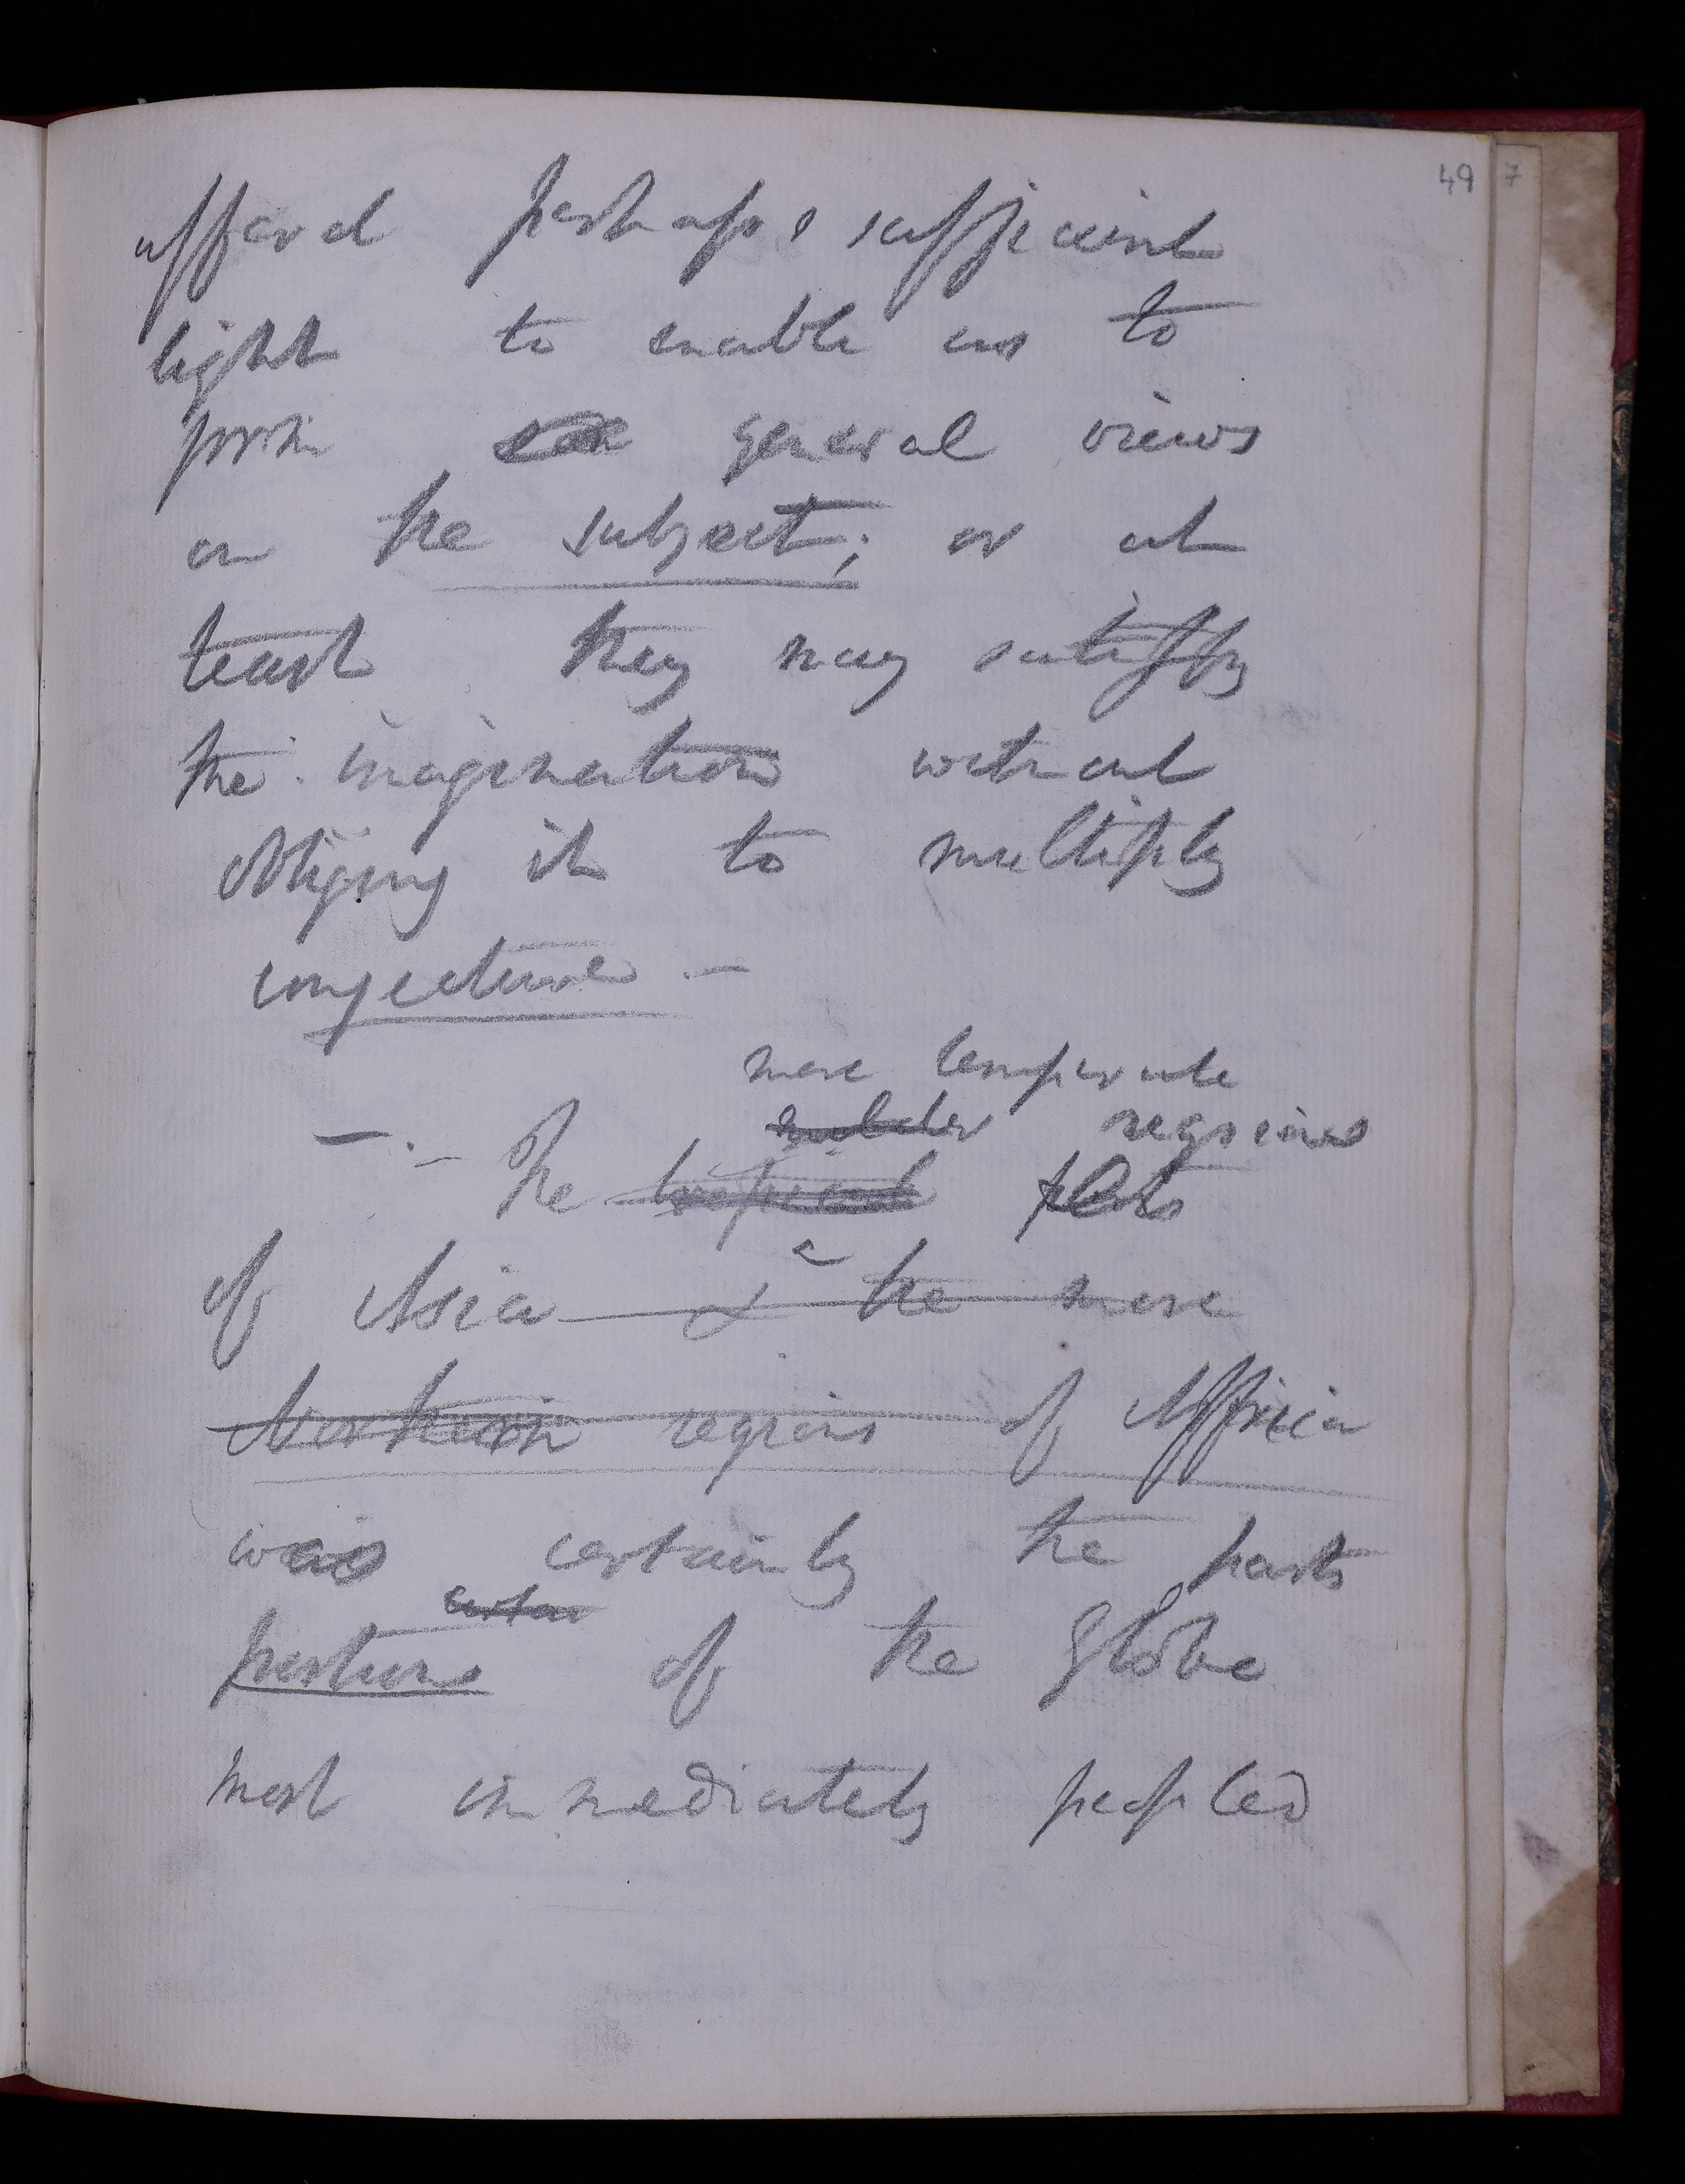 49 7
afford perhaps sufficient
light to enable us to
form general views
on the subject; or at
least they may satisfy
the imagination without
obliging it to multiply
conjecture. —
more temperate
regions
— . – The tropical
of Asia & the more
Northern regions of Affrica
was certainly the parts
portions of the Globe
most immediately peopled